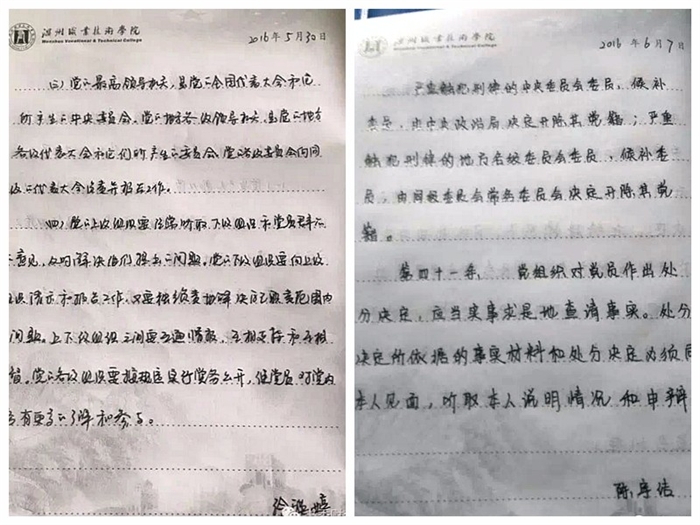 温州职业技术学院
Wenzhou Vocational & Technical College
2016年5月30日
(三)党的最高领导机关,是党的全国代表大会和它
所产生的中央委员会。党的地方各级领导机关,是党的地方
各级代表大会和它们所产生的委员会。党的各级委员会向同
级的代表大会负责并报告工作。
(四)党的上级组织要经常听取下级组织和党员群众的
意见,及时解决他们提出的问题。党的下级组织要向上级
组织请示和报告工作,又要独立负责地解决自己职责范围内
问题。上下级组织之间要互通情报、互相支持和互相
督。党的各级组织要按规定实行党务公开,使党员对党内
有更多的了解和参与。
温州职业技术学院
Wenzhou Vocational & Technical College
2016年6月7日
严重触犯刑律的中央委员会委员、候补
委员,由中央政治局决定开除其党籍;严重
触犯刑律的地方各级委员会委员、候补委
员,由同级委员会常务委员会决定开除其党
籍。
第四十一条,党组织对党员作出处
分决定,应当实事求是地查清事实。处分
决定所依据的事实材料和处分决定必须同
本人见面,听取本人说明情况和申辩